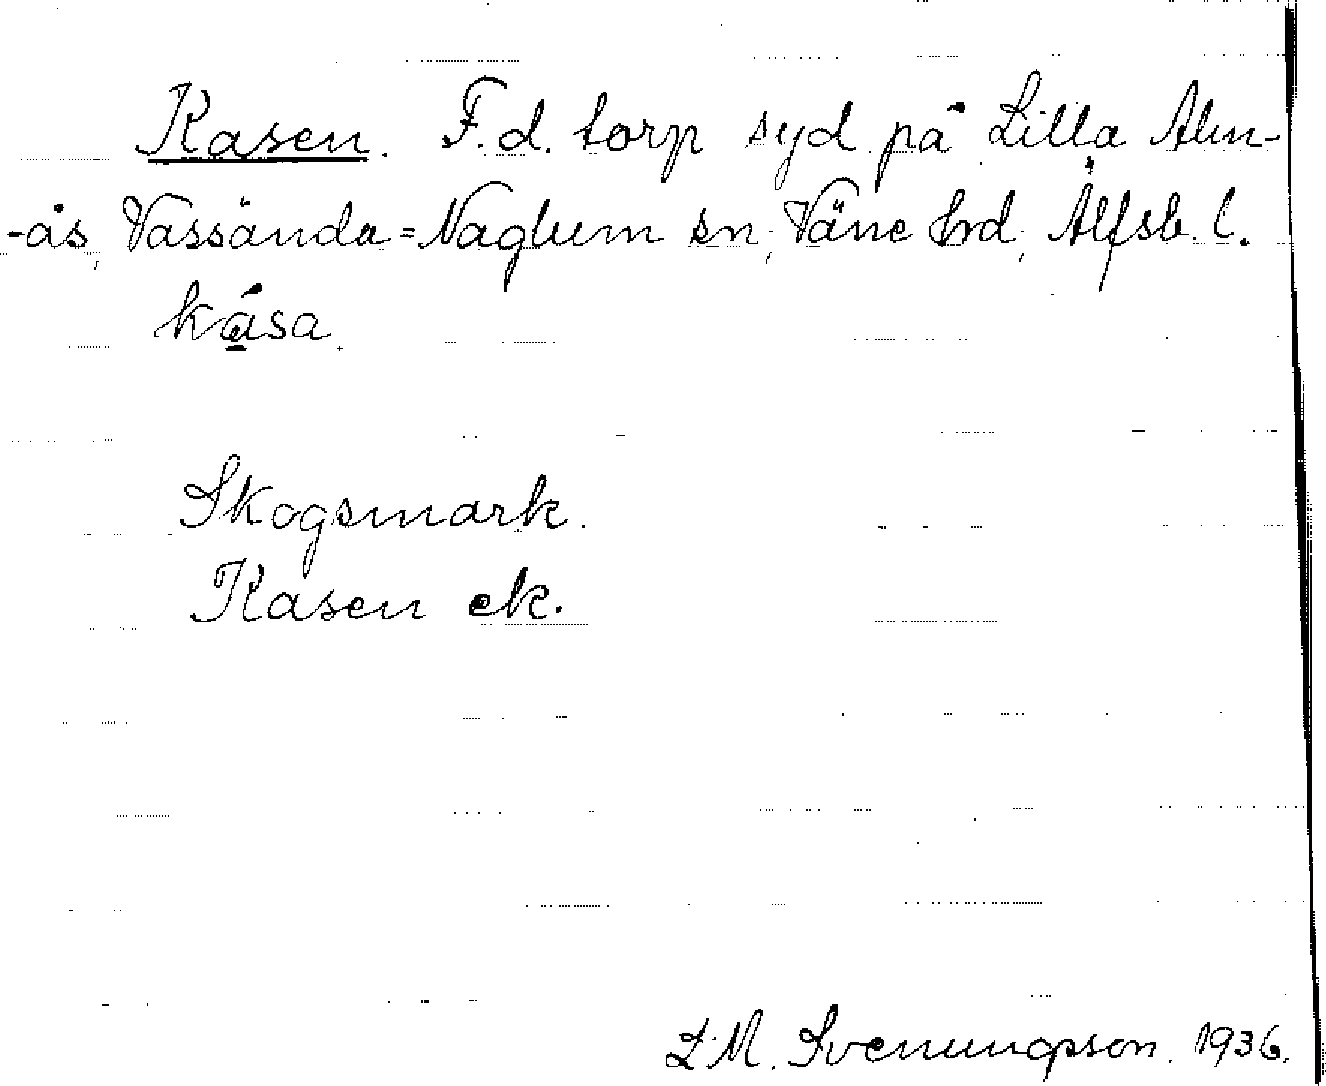 Kasen. F.d. torp syd på Lilla Alm-
-ås, Vassända=Naglum sn, Väne hrd, Älfsb. l.
kása.
Skogsmark.
Kasen ek.
L.M. Svenungsson. 1936.